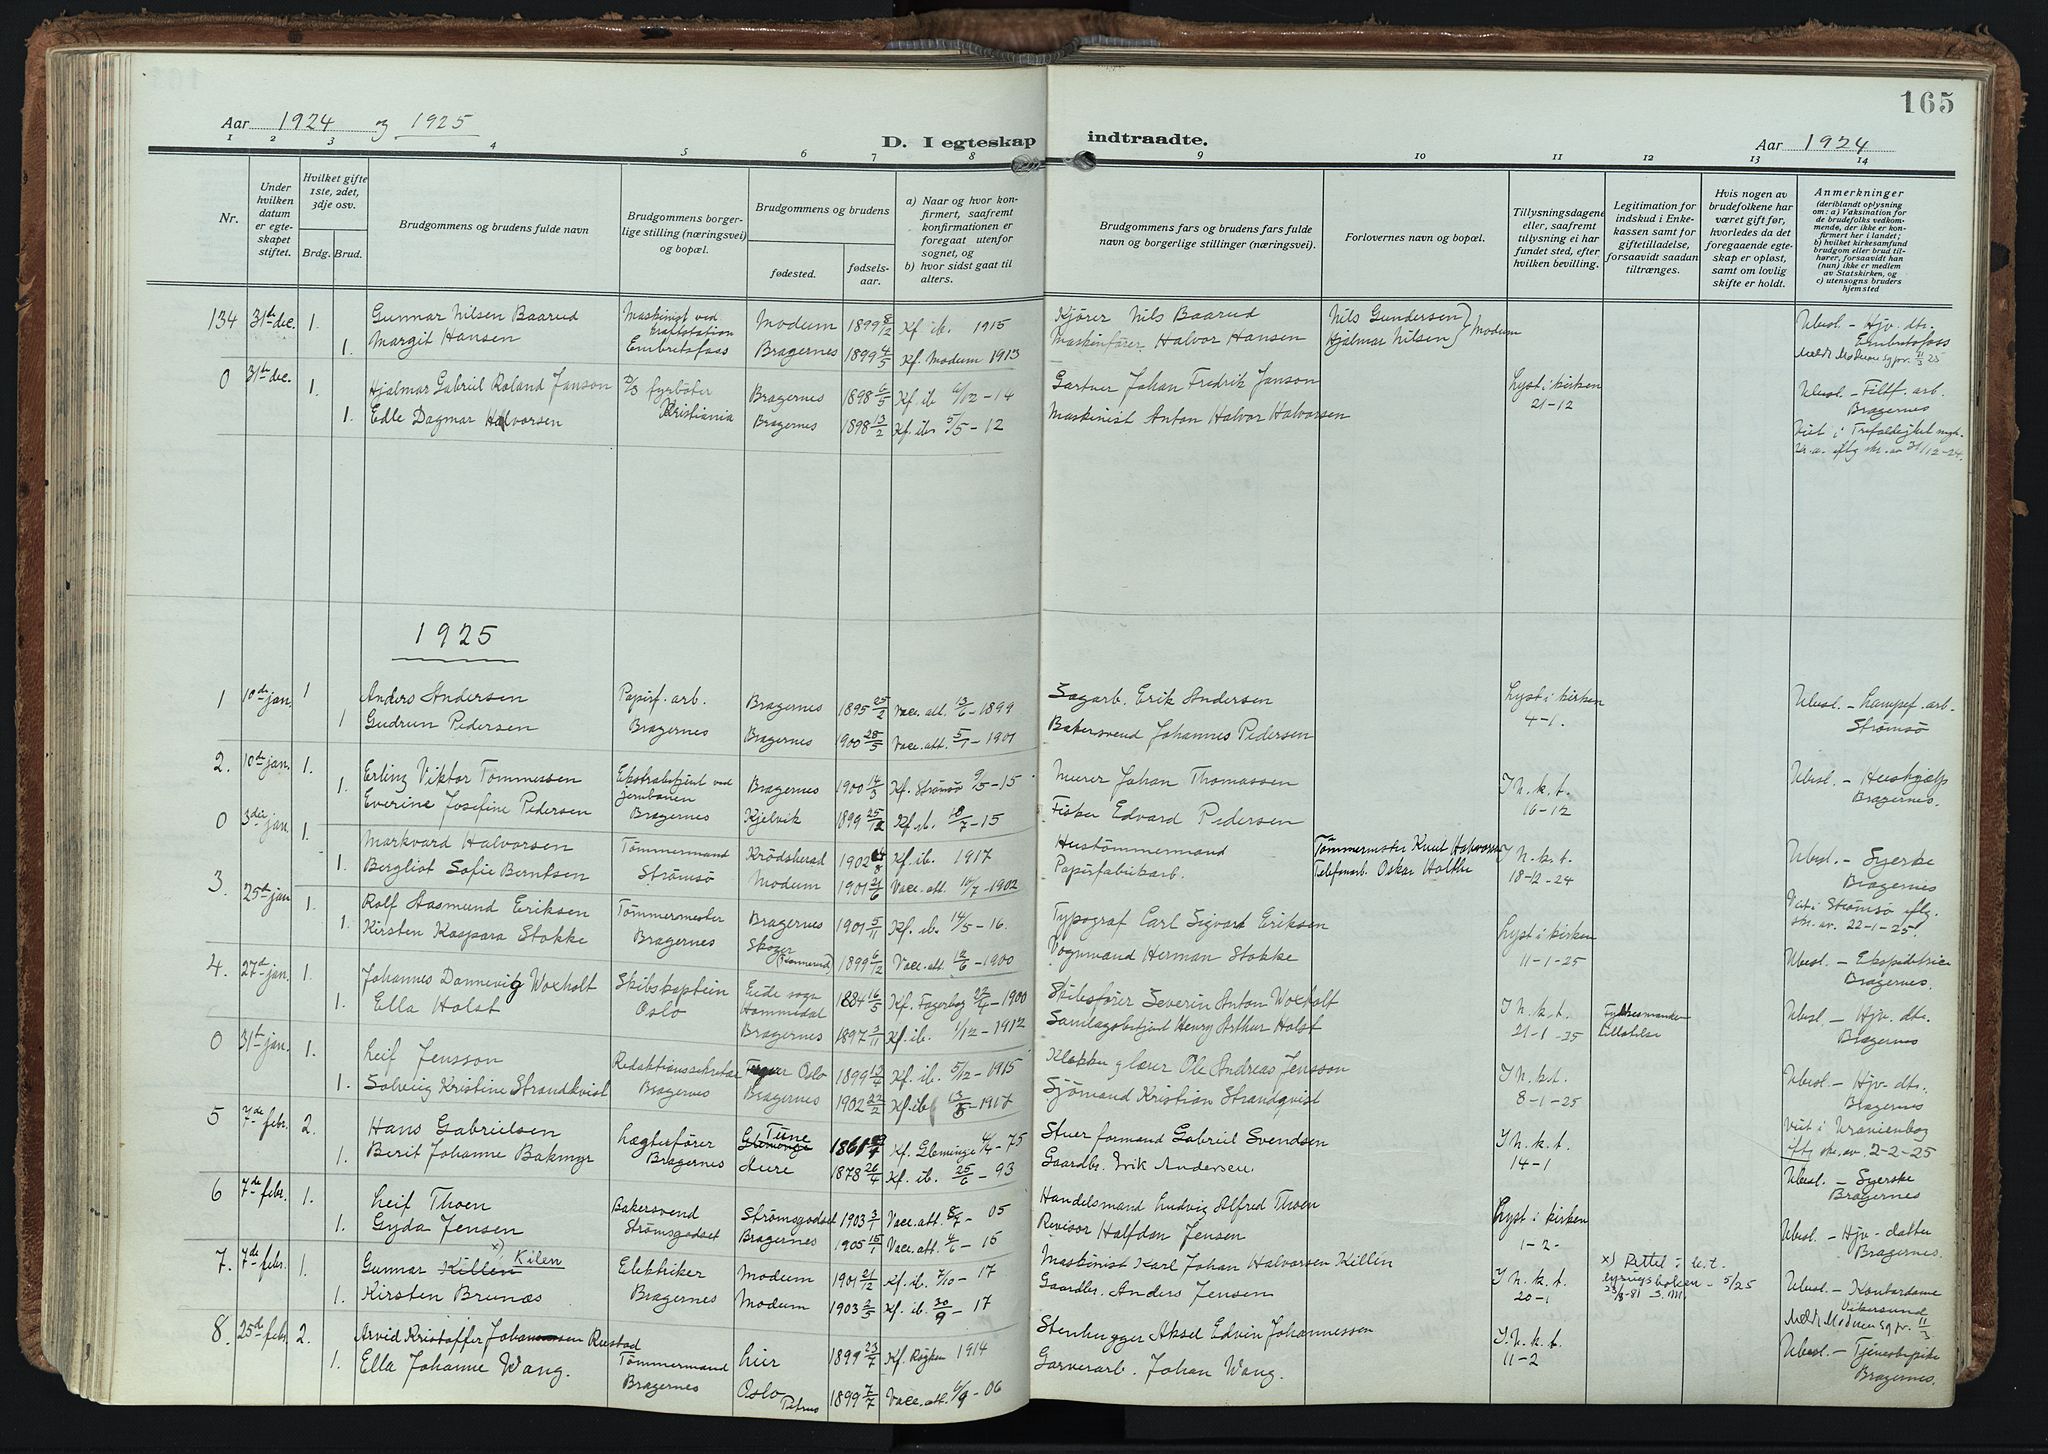 165
Aar 1924 og 1925
D. I egteskap indtraadte.
Aar 1924
1 2 3 4 5 6 7 8 9 10 11 12 13 14
Nr.
Under hvilken datum er egteskapet stiftet.
Hvilket gifte 1ste, 2det, 3dje osv.
Brdg. Brud.
Brudgommens og brudens fulde navn
Brudgommens borgerlige stilling (næringsvei) og bopæl.
Brudgommens og brudens
fødested.
fødselsaar.
a) Naar og hvor konfirmert, saafremt konfirmationen er foregaat utenfor sognet, og
b) hvor sidst gaat til alters.
Brudgommens fars og brudens fars fulde navn og borgerlige stillinger (næringsvei).
Forlovernes navn og bopæl.
Tillysningsdagene eller, saafremt tillysning ei har fundet sted, efter hvilken bevilling.
Legitimation for indskud i Enkekassen samt for giftetilladelse, forsaavidt saadan tiltrænges.
Hvis nogen av brudefolkene har været gift før, hvorledes da det foregaaende egteskap er opløst, samt om lovlig skifte er holdt.
Anmerkninger (deriblandt oplysning om: a) Vaksination for de brudefolks vedkommende, der ikke er konfirmert her i landet; b) hvilket kirkesamfund brudgom eller brud tilhører, forsaavidt han (hun) ikke er medlem av Statskirken, og c) utensogns bruders hjemsted
134 31te dec. 1. Gunnar Nilsen Baarud Maskinist ved kraftstation Modum 1899 8/12 Kf. ib. 1915 Kjører Nils Baarud Nils Gundersen Ubesl. - Hjv. dtr.
1. Margit Hansen Embretsfoss Bragernes 1899 4/5 Kf. Modum 1913 Maskinfører Halvor Hansen Hjalmar Nilsen } Modum Embretsfoss
Meldt Modum sgpr. 11/3 25
0 31te dec. 1. Hjalmar Gabriel Roland Janson D/S fyrbøter Bragernes 1898 6/5 Kf. ib. 6/12 - 14 Gartner Johan Fredrik Janson Lyst i kirken Ubesl. - Filtf. arb.
1. Edle Dagmar Halvorsen Kristiania Bragernes 1898 13/2 Kf. ib. 5/5 - 12 Maskinist Anton Halvor Halvorsen 21-12 Bragernes
Viet i Trefoldighet
31/12-24.
1925
1 10de jan. 1 Anders Andersen Papirf. arb. Bragernes 1895 25/2 Vacc. att. 13/6 - 1899 Sagarb. Erik Andersen Lyst i kirken Ubesl. - Lampef. arb.
1 Gudrun Pedersen Bragernes Bragernes 1900 28/5 Vacc. att. 5/7 - 1901 Bakersvend Johannes Pedersen 4-1. Strømsø
2. 10de jan. 1. Erling Viktor Tommessen Ekstrabetjent ved jernbanen Bragernes 1900 14/3 Kf. Strømsø 9/5 - 15 Murer Johan Thomassen I h. k. t. Ubesl. - Hushjælp
1. Everine Josefine Pedersen Bragernes Kjelvik 1899 25/12 Kf. ib. 18/7 - 15 Fisker Edvard Pedersen 16-12 Bragernes.
0 3die jan. 1. Markvard Halvorsen Tømmermand Krødsherad 1902 Kf. ib. 1917 Hustømmermand Tømmermester Knut Halvorsen I h. k. t. Ubesl. - Syerske
1. Bergliot Sofie Berntsen Strømsø Modum 1901 21/6 Vacc. att. 10/7 - 1902 Papirfabrikarb. Telefonarb. Oskar Holthe 18-12-24 Bragernes
Viet i Strømsø iflg. skr. av. 22-1-25.
3. 25de jan 1. Rolf Aasmund Eriksen Tømmermester Bragernes 1901 5/11 Kf. ib. 14/5 - 16. Typograf Carl Sigvard Eriksen Lyst i kirken Ubesl. - Ekspeditrice
1. Kirsten Kaspara Stokke Bragernes Skoger (Konnerud) 1899 6/12 Vacc. att. 12/6 - 1900 Vognmand Herman Stokke 11-1-25 Bragernes.
4. 27de jan. 1. Johannes Dannevig Woxholt Skibskaptein Eide sogn Hommedal 1884 16/5 Kf. Fagerborg 22/4 - 1900 Skibsfører Severin Anton Woxholt I h. k. t. Fylkesmanden Ubesl. - Hjv. dtr.
1. Ella Holst Oslo Bragernes 1897 3/11 Kf. ib. 1/12 - 1912 Samlagsbetjent Henry Arthur Holst 21-1-25 tillatelse Bragernes
0 31te jan. 1. Leif Jensson Redaktionssekretær Oslo 1899 12/4 Kf. ib. 5/12 - 1915 Klokker og lærer Ole Andreas Jensson I h. k. t. Ubesl. - Hjv. dtr.
1. Solveig Kristine Strandkvist Bragernes Bragernes 1902 22/2 Kf. ib. 13/5 - 1917 Sjømand Kristian Strandqvist 8-1-25 Bragernes
Viet i Uranienborg iflg. skr. av. 2-2-25
5 7de febr. 2. Hans Gabrielsen Lægterfører Glemminge Tune 1861 Kf. Glemminge 4/4 - 75 Stuerformand Gabriel Svendsen I h. k. t. Ubesl. - Syerske
1. Berit Johanne Bakmyr Bragernes Aure 1878 26/4 Kf. ib. 25/6 - 93 Gaardbr. Erik Andersen. 14-1 Bragernes
6 7de febr. 1. Leif Thoen Bakersvend Strømsgodset 1903 3/1 Vacc. att. 8/7 - 05 Handelsmand Ludvig Alfred Thoen Lyst i kirken Ubesl. - Hjv. datter
1. Gyda Jensen Strømsgodset Bragernes 1905 15/1 Vacc. att. 4/6 - 15 Revisor Halfdan Jensen 1-2- Bragernes.
7. 7de febr. 1. Gunnar Killen x) Kilen Elektriker Modum 1901 21/12 Kf. ib. 7/10 - 17 Maskinist Karl Johan Halvorsen Killén I h. k. t. x) Rettet i h. t. lysningsboken - 5/25 23/3-81 S.M. Ubesl. - Kontordame
1. Kirsten Brunæs Bragernes Modum 1903 2/5 Kf. ib. 30/9 - 17 Gaardbr. Anders Jensen 20-1 Vikersund
Meldt Modum sgpr. 11/3
8. 25de febr. 2. Arvid Kristoffer Johannessen Ruestad Tømmermand Lier 1899 23/7 Kf. Røyken 1914 Stenhugger Aksel Edvin Johannessen I. h. k. t. Ubesl. - Tjenestepike
1. Ella Johanne Wang. Bragernes Oslo Petrus 1899 7/7 Vacc. att. 6/9 - 06 Garverarb. Johan Wang. 11-2 Bragernes.